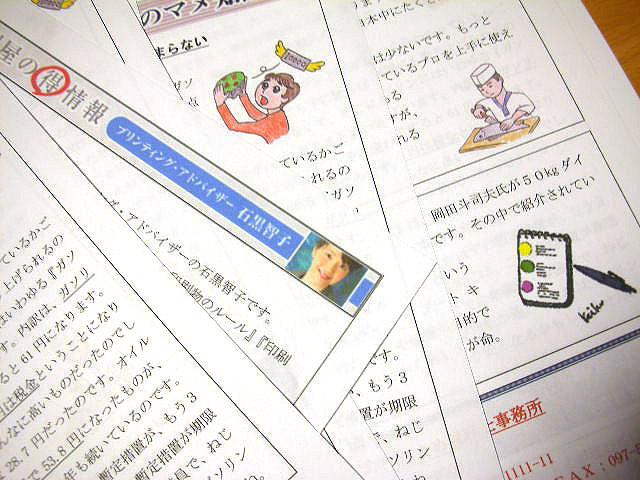 のマメ知
まらない
ガソ
点
ているかご
れるの
ガソ
屋の得情報
プリンティング・アドバイザー 石黒智子
・アドバイザーの石黒智子です。
印刷物のルール』『印刷
は少ないです。もっと
ているプロを上手に使え
る
すが、
れる
岡田斗司夫氏が50kgダイ
です。その中で紹介されてい
いう
トキ
目的で
が命。
ているかご
上げられるの
はいわゆる『ガソ
す。内訳は、ガソリ
ると61円になります。
は税金ということになり
んなに高いものだったのでし
28.7円だったのです。オイル
で53.8円になったものが、
年も続いているのです。
暫定措置が、もう3
暫定措置が期限
員で、ねじ
ガソリン
です。
、もう3
置が期限
で、ねじ
ソリン
士事務所
1111-11
FAX:097-5